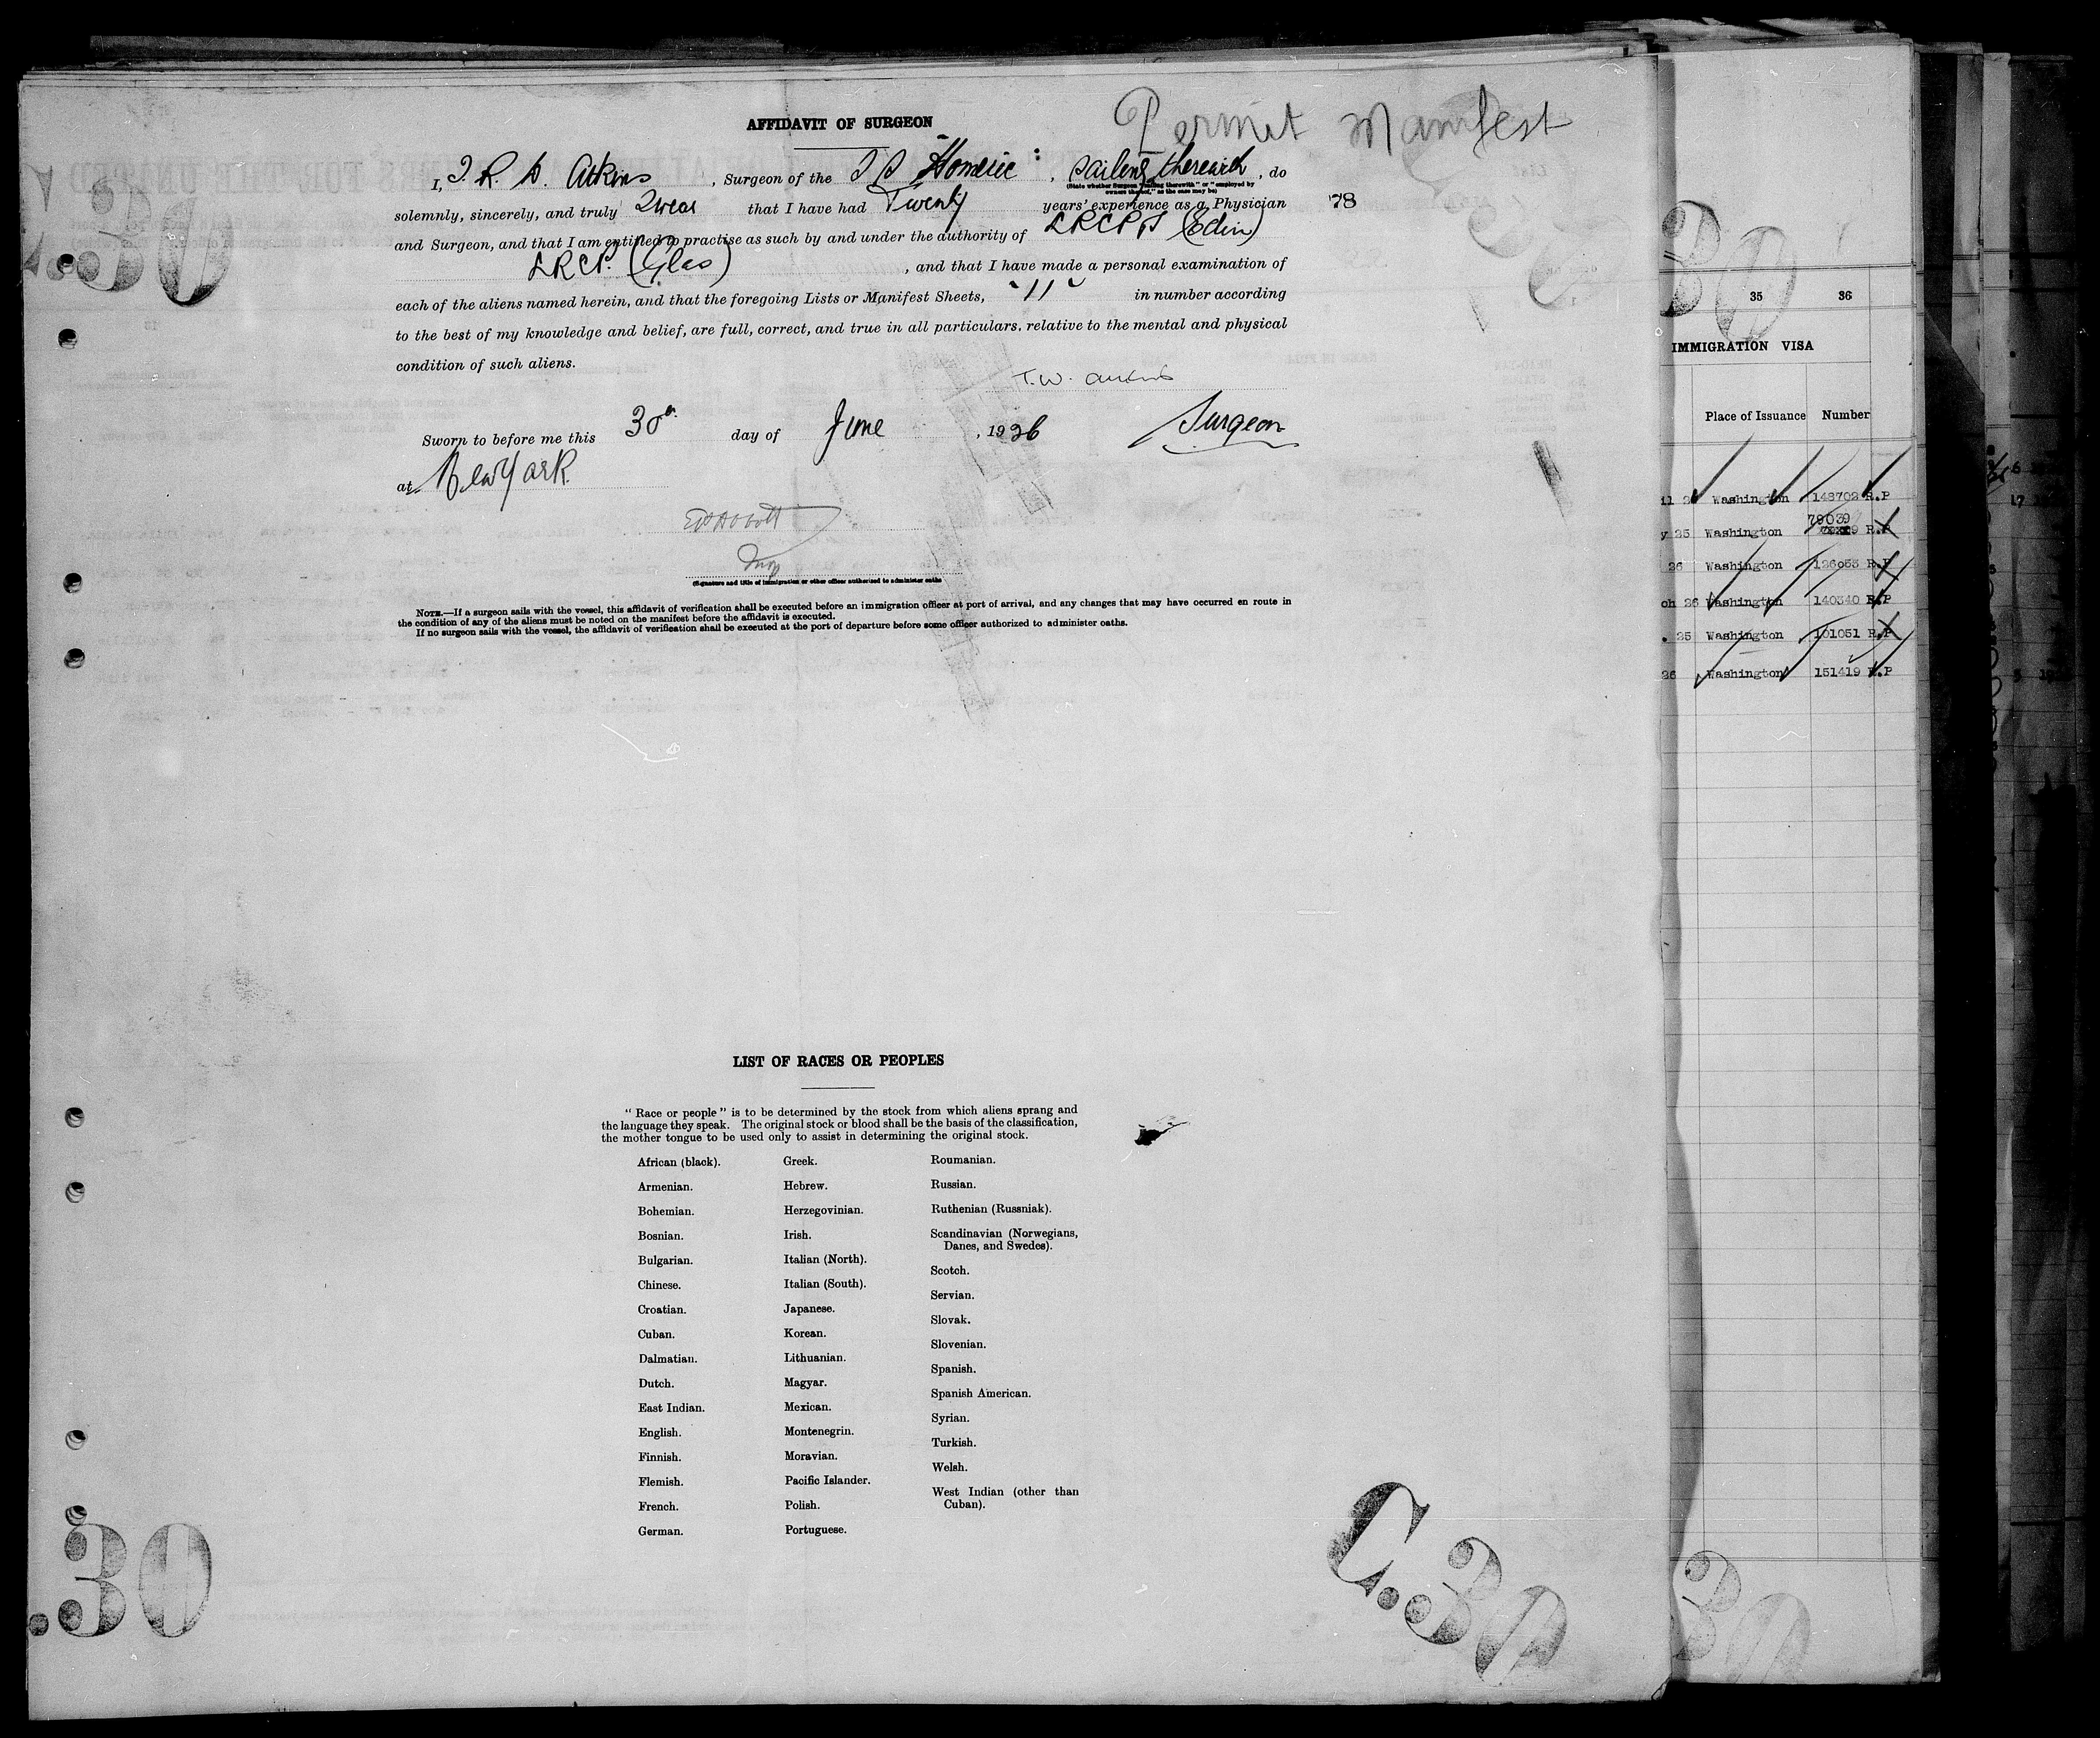 Permit Manifest
AFFIDAVIT OF SURGEON
I, Atkins, Surgeon of the SS "Homeric", sailing therewith, do
(State whether Surgeon "sailing therewith" or "employed by
owners thereof," as the case may be)
solemnly, sincerely, and truly Swear that I have had Twenty years' experience as a Physician
78
and Surgeon, and that I am entitled to practise as such by and under the authority of LRCP (Edin)
LRCP. (Glas), and that I have made a personal examination of
each of the aliens named herein, and that the foregoing Lists or Manifest Sheets, "11" in number according
to the best of my knowledge and belief, are full, correct, and true in all particulars, relative to the mental and physical
condition of such aliens.
T.W. Atkins
Sworn to before me this 30th day of June, 1926 Surgeon
at New York
(Signature and title of immigration or other officer authorized to administer oaths
NOTE.—If a surgeon sails with the vessel, this affidavit of verification shall be executed before an immigration officer at port of arrival, and any changes that may have occurred en route in
the condition of any of the aliens must be noted on the manifest before the affidavit is executed.
If no surgeon sails with the vessel, the affidavit of verification shall be executed at the port of departure before some officer authorized to administer oaths.
LIST OF RACES OR PEOPLES
"Race or people" is to be determined by the stock from which aliens sprang and
the language they speak. The original stock or blood shall be the basis of the classification,
the mother tongue to be used only to assist in determining the original stock.
African (black).
Armenian.
Bohemian.
Bosnian.
Bulgarian.
Chinese.
Croatian.
Cuban.
Dalmatian.
Dutch.
East Indian.
English.
Finnish.
Flemish.
French.
German.
Greek.
Hebrew.
Herzegovinian.
Irish.
Italian (North).
Italian (South).
Japanese.
Korean.
Lithuanian.
Magyar.
Mexican.
Montenegrin.
Moravian.
Pacific Islander.
Polish.
Portuguese.
Roumanian.
Russian.
Ruthenian (Russniak).
Scandinavian (Norwegians,
Danes, and Swedes).
Scotch.
Servian.
Slovak.
Slovenian.
Spanish.
Spanish American.
Syrian.
Turkish.
Welsh.
West Indian (other than
Cuban).
.30
C.30
30
35 36
IMMIGRATION VISA
Place of Issuance Number
il 26 Washington 148702 R.P
79039
y 25 Washington R.P
26 Washington 126053 R.P
ch 26 Washington 140340 R.P
. 25 Washington 101051 R.P
26 Washington 151419 R.P
30